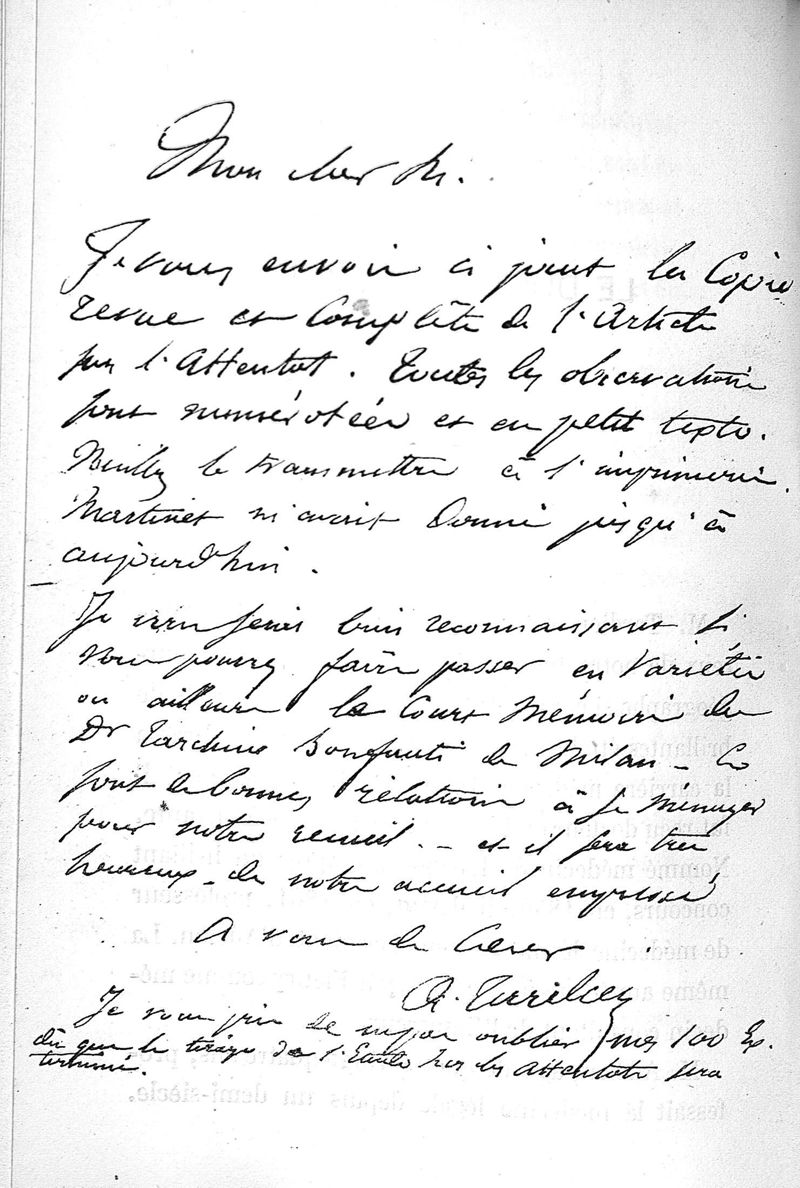 Mon cher M.
Je vous envoie ci joint la Copie
revue et Complète de l'Article
sur l'Attentat. Toutes les observations
sont numérotées et en petit texte.
Veuillez le transmettre à l'imprimerie
Martinet m'avait donné jusqu'à
aujourd'hui.
Je vous serais bien reconnaissant si
vous pouvez faire passer en Variétés
ou ailleurs le Court Mémoire du
Dr de Milan - Ce
sont de bonnes relations à se ménager
pour notre recueil. - et il sera très
heureux - de notre accueil empressé
A vous de Coeur
A.
Je vous prie de ne pas oublier mes 100 Ex.
dès que le tirage de l'Etude sur les Attentats sera
terminé.